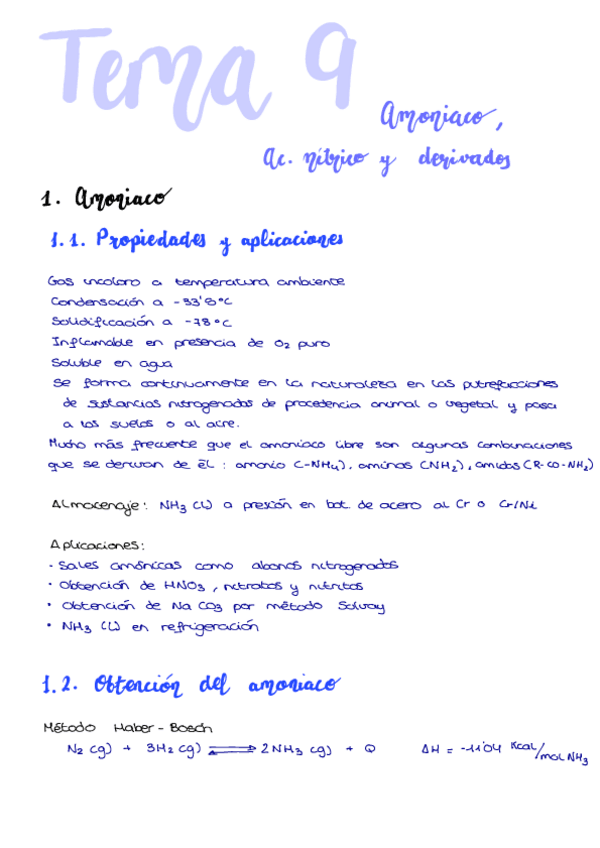 Tema 9
Amoniaco,
Ac. nítrico y derivados
1. Amoniaco
1.1. Propiedades y aplicaciones
Gas incoloro a temperatura ambiente
Condensación a -33'8°C
Solidificación a -78°C
Inflamable en presencia de O2 puro
Soluble en agua
Se forma continuamente en la naturaleza en las putrefacciones
de sustancias nitrogenadas de procedencia animal o vegetal y pasa
a los suelos o al aire.
Mucho más frecuente que el amoniaco libre son algunas combinaciones
que se derivan de él: amonio (-NH4), aminas (NH2), amidas (R-CO-NH2)
Almacenaje: NH3 (l) a presión en bot. de acero al Cr o Cr/Ni
Aplicaciones:
· Sales amónicas como abonos nitrogenados
· Obtención de HNO3, nitratos y nitritos
· Obtención de Na CO3 por método Solvay
· NH3 (l) en refrigeración
1.2. Obtención del amoniaco
Método Haber-Bosch
N2 (g) + 3H2 (g) ⇌ 2NH3 (g) + Q ΔH = -11'04 Kcal/mol NH3